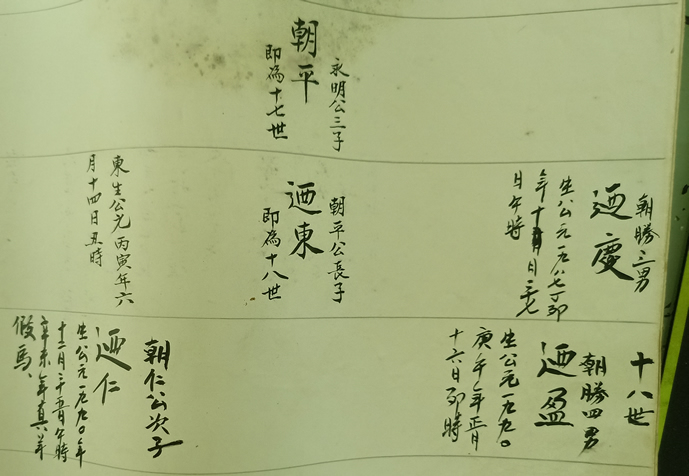 永明公三子
朝平
即為十七世
朝勝三男
迺慶
生公元一九八七丁卯
年十月二十七
日午時
朝平公長子
迺東
即為十八世
東生公元丙寅年六
月十四日丑時
十八世
朝勝四男
迺盈
生公元一九九〇
庚午年正月
十六日卯時
朝仁公次子
迺仁
生公元一九九〇年
十二月二十五日午時
辛未年真羊
假馬